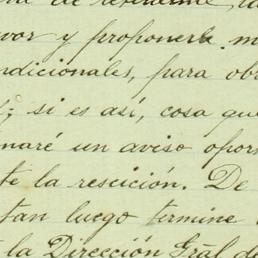 vor y proponerle m
ndicionales, para ob
; si es así, cosa que
naré un aviso opor
te la rescición. De
tan luego termine
la Dirección Gral de